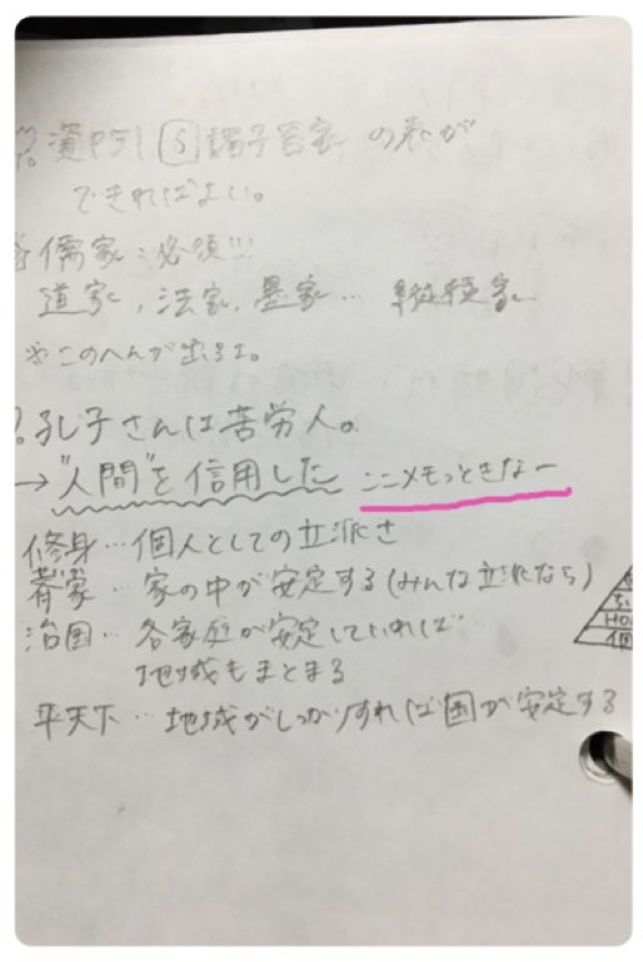 資P51 ⑤ 諸子百家 の表が
できればよい。
儒家:必須!!!
道家,法家,墨家… 縦横家
※このへんが出るよ。
孔子さんは苦労人。
→"人間"を信用した ここメモっときなー
修身…個人としての立派さ
斉家…家の中が安定する(みんな立派なら)
治国…各家庭が安定していれば
地域もまとまる
平天下…地域がしっかりすれば国が安定する
HO
個